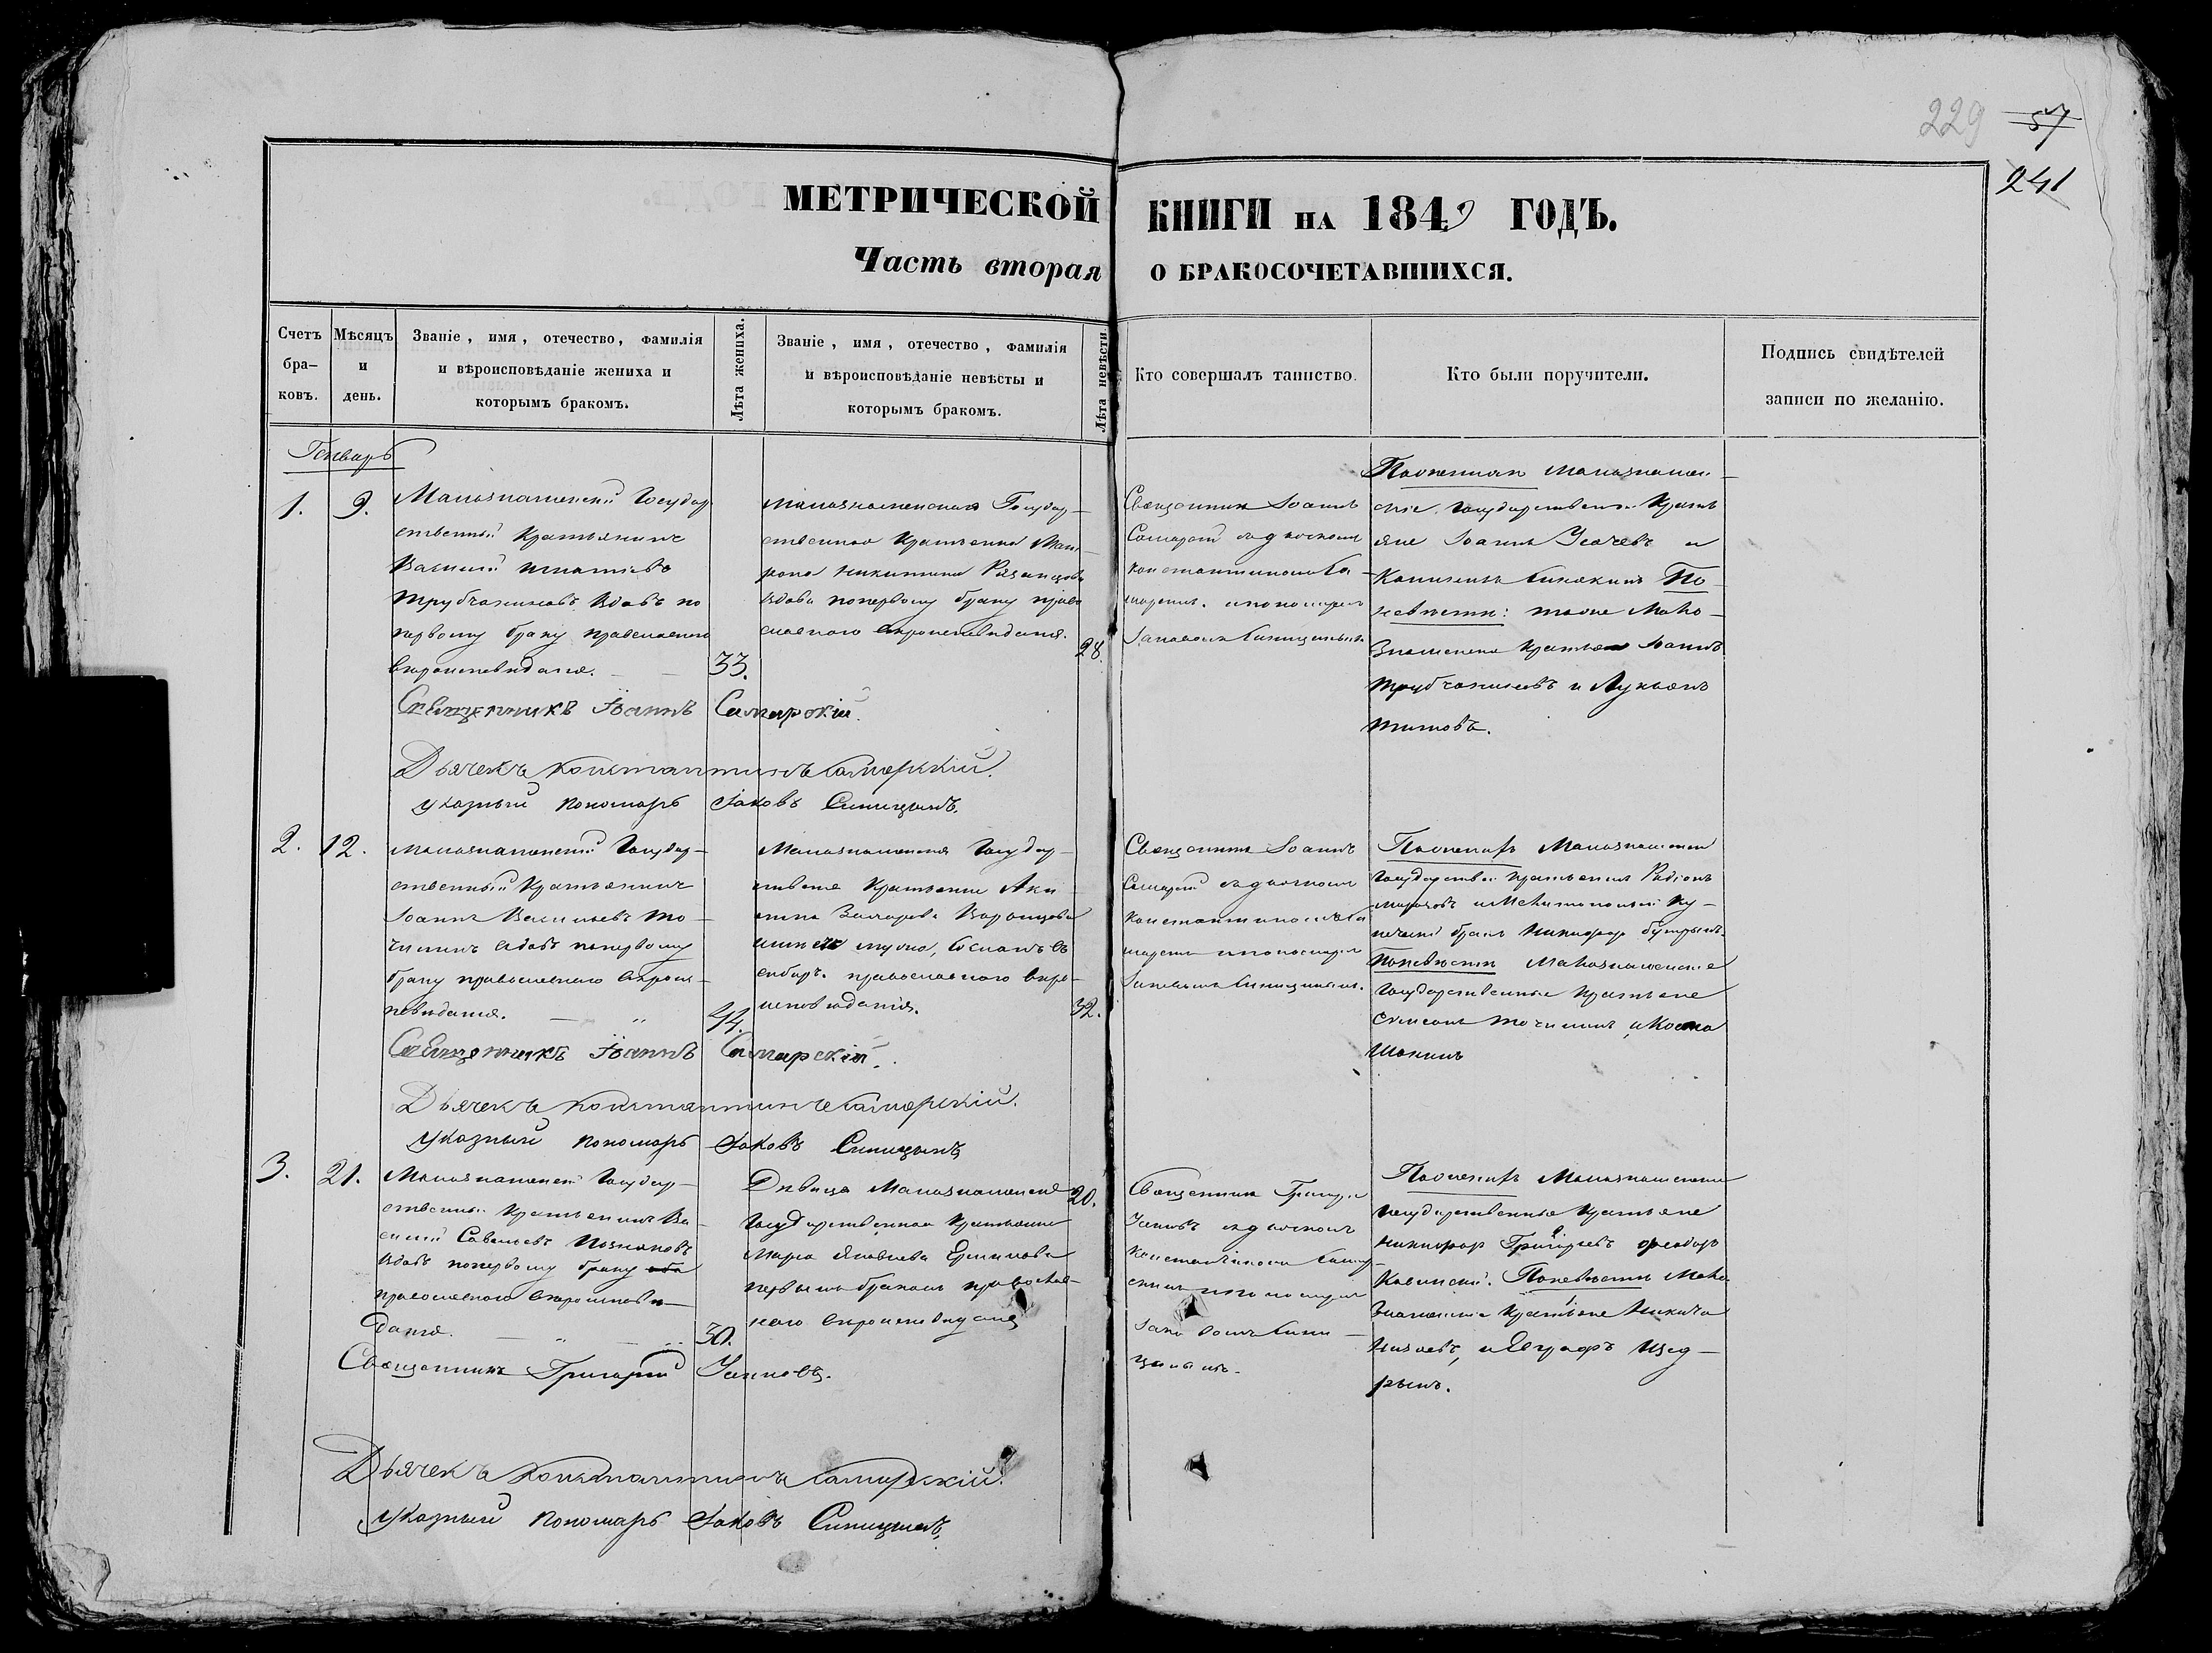 229 57
241
МЕТРИЧЕСКОЙ КНИГИ НА 1849 ГОДЪ.
Часть вторая О БРАКОСОЧЕТАВШИХСЯ.
Счетъ бра-ковъ.
Мѣсяцъ и день.
Званіе, имя, отечество, фамилія
и вѣроисповѣданіе жениха и
которымъ бракомъ.
Лѣта жениха.
Званіе, имя, отечество, фамилія
и вѣроисповѣданіе невѣсты и
которымъ бракомъ.
Лѣта невѣсты
Кто совершалъ таинство.
Кто были поручители.
Подпись свидѣтелей
записи по желанію.
Генварь
1. 9.
Малознаменскій Государ
ственный Крестьянинъ
Василій Игнатьевъ
Трубчаниновъ вдовъ по
первому браку православнаго
вѣроисповѣданія. 33.
Малознаменская Государ-
ственная Крестьянка Мат-
рона Никитина
вдова попервому браку право
славнаго вѣроисповѣданія. 28.
Священникъ Іоаннъ
Самарскій съ дьячкомъ
Константиномъ Са-
марскимъ и пономаремъ
Іаковомъ Синицынымъ
По женихѣ Малознамен-
скіе Государственные Кресть
яне Іоаннъ Усачевъ и
По
невѣсте: тоже Мало-
знаменскіе Крестьяне Іоаннъ
Трубчаниновъ и Лукьянъ
Титовъ.
Священникъ Іоаннъ Самарскій.
Дьячекъ Константинъ Самарскій.
Указный Пономарь Іаковъ Синицынъ.
2. 12.
Малознаменскій Государ-
ственный Крестьянинъ
Іоаннъ Васильевъ То-
чилинъ вдовъ попервому
браку православнаго вѣроис-
повѣданія. 44.
Малознаменская Государ-
ственная Крестьянка Аки-
лина Захарова Воронцова
сосланъ въ
сибирь. православнаго вѣро-
исповѣданія. 32.
Священникъ Іоаннъ
Самарскій съ дьячкомъ
Константиномъ Са
марскимъ и пономаремъ
Іаковомъ Синицынымъ.
По женихѣ Малознаменскій
Государственный Крестьянинъ Родіонъ
и Мелитопольскій Ку-
печескій братъ Никифор
По невѣсте Малознаменскіе
Государственные Крестьяне
Симеонъ Точилинъ, и Косма
Шанинъ
Священникъ Іоаннъ Самарскій.
Дьячекъ Константинъ Самарскій.
Указный Пономарь Іаковъ Синицынъ
3. 21.
Малознаменскій Государ-
ственный Крестьянинъ Ва-
силій Савельевъ Позняковъ
вдовъ попервому браку
православнаго вѣроисповѣ-
данія. 30.
Дѣвица Малознаменская
Государственная Крестьянка
Марѳа Яковлева Ермилова
первымъ бракомъ православ-
наго вѣроисповѣданія 20.
Священникъ Григорій
съ дьячкомъ
Константиномъ Самар-
скимъ и пономаремъ
Іаковомъ Сини-
цынымъ.
По женихѣ Малознаменскіе
Государственные Крестьяне
Никифоръ Григорьевъ Феодоръ
По невѣсте Мало
знаменскіе Крестьяне Никита
и Евграфъ Щед-
ринъ.
Священникъ Григорій
Дьячекъ Константинъ Самарскій.
Указный Пономарь Іаковъ Синицынъ.